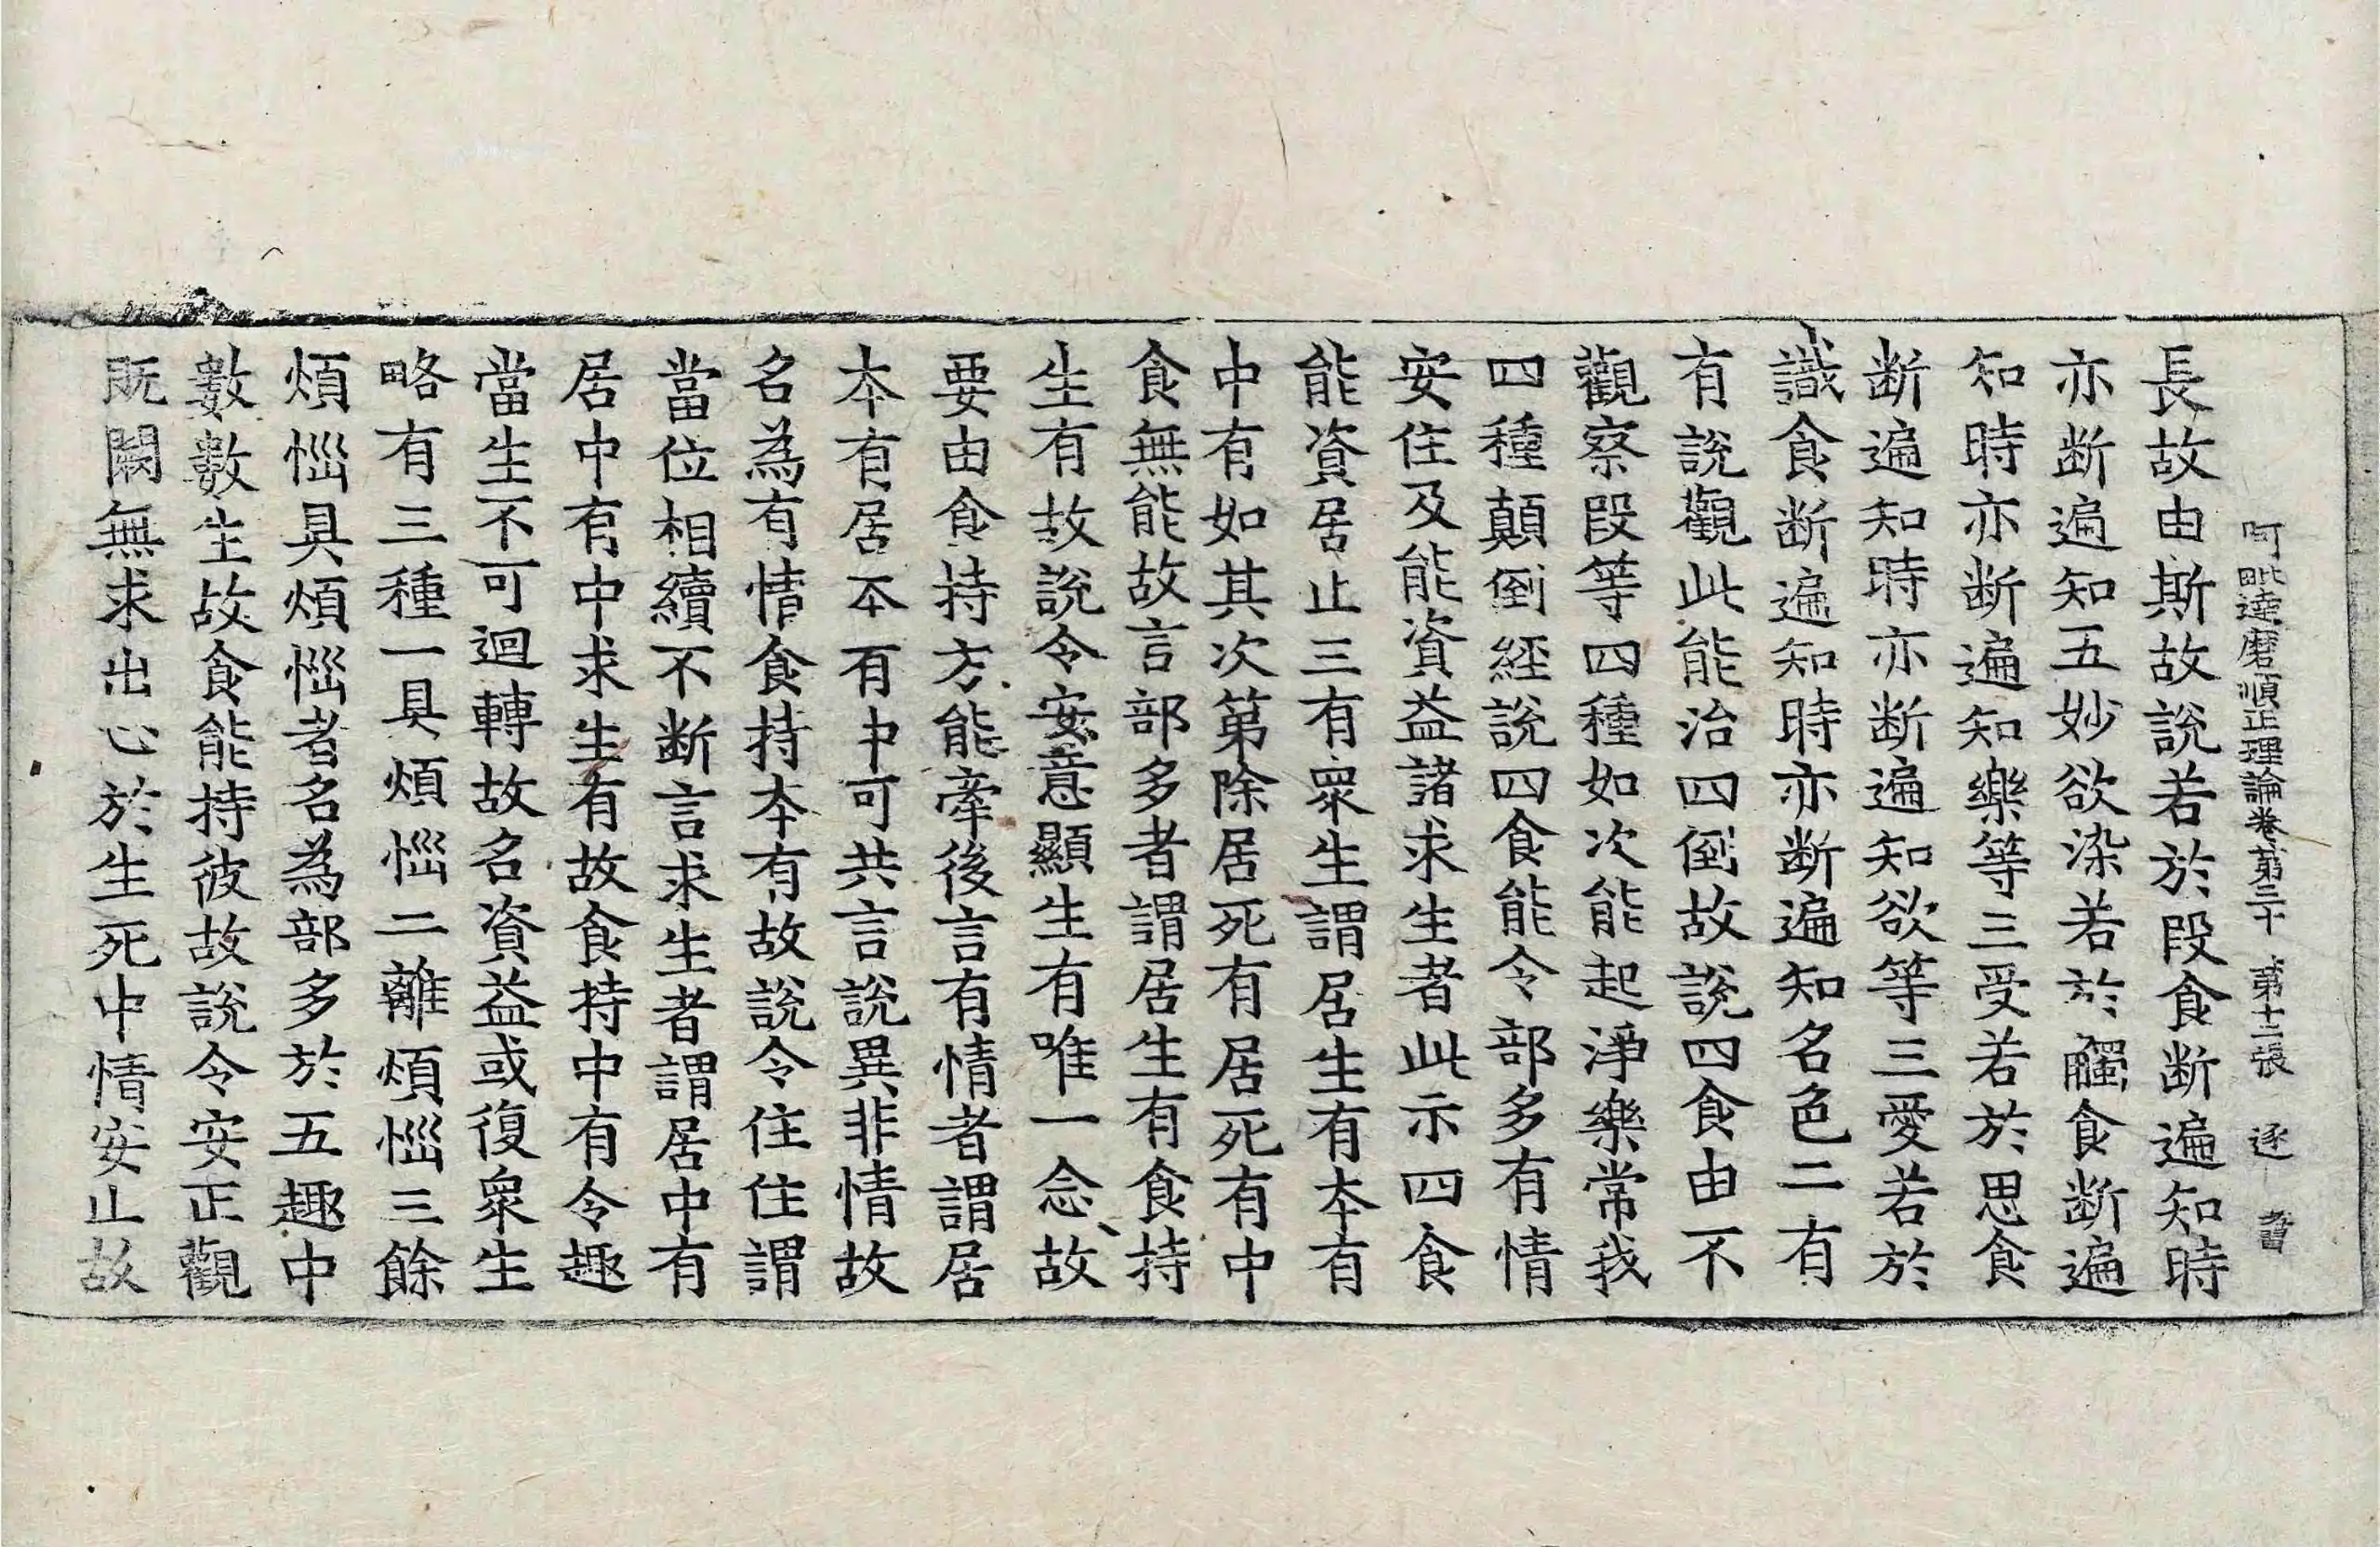 阿毗達磨順正理論卷第三十 第十二張 逐
長故由斯故說若於段食断遍知時
亦断遍知五妙欲染若於觸食断遍
知時亦断遍知樂等三受若於思食
断遍知時亦断遍知欲等三愛若於
識食断遍知時亦断遍知名色二有
有說觀此能治四倒故說四食由不
觀察段等四種如次能起淨樂常我
四種顛倒經說四食能令部多有情
安住及能資益諸求生者此示四食
能資居止三有衆生謂居生有本有
中有如其次第除居死有居死有中
食無能故言部多者謂居生有食持
生有故說令安意顯生有唯一念故
要由食持方能牽後言有情者謂居
本有居本有中可共言說異非情故
名為有情食持本有故說令住住謂
當位相續不断言求生者謂居中有
居中有中求生有故食持中有令趣
當生不可迴轉故名資益或復衆生
略有三種一具煩惱二離煩惱三餘
煩惱具煩惱者名為部多於五趣中
數數生故食能持彼故說令安正觀
既闕無求出心於生死中情安止故